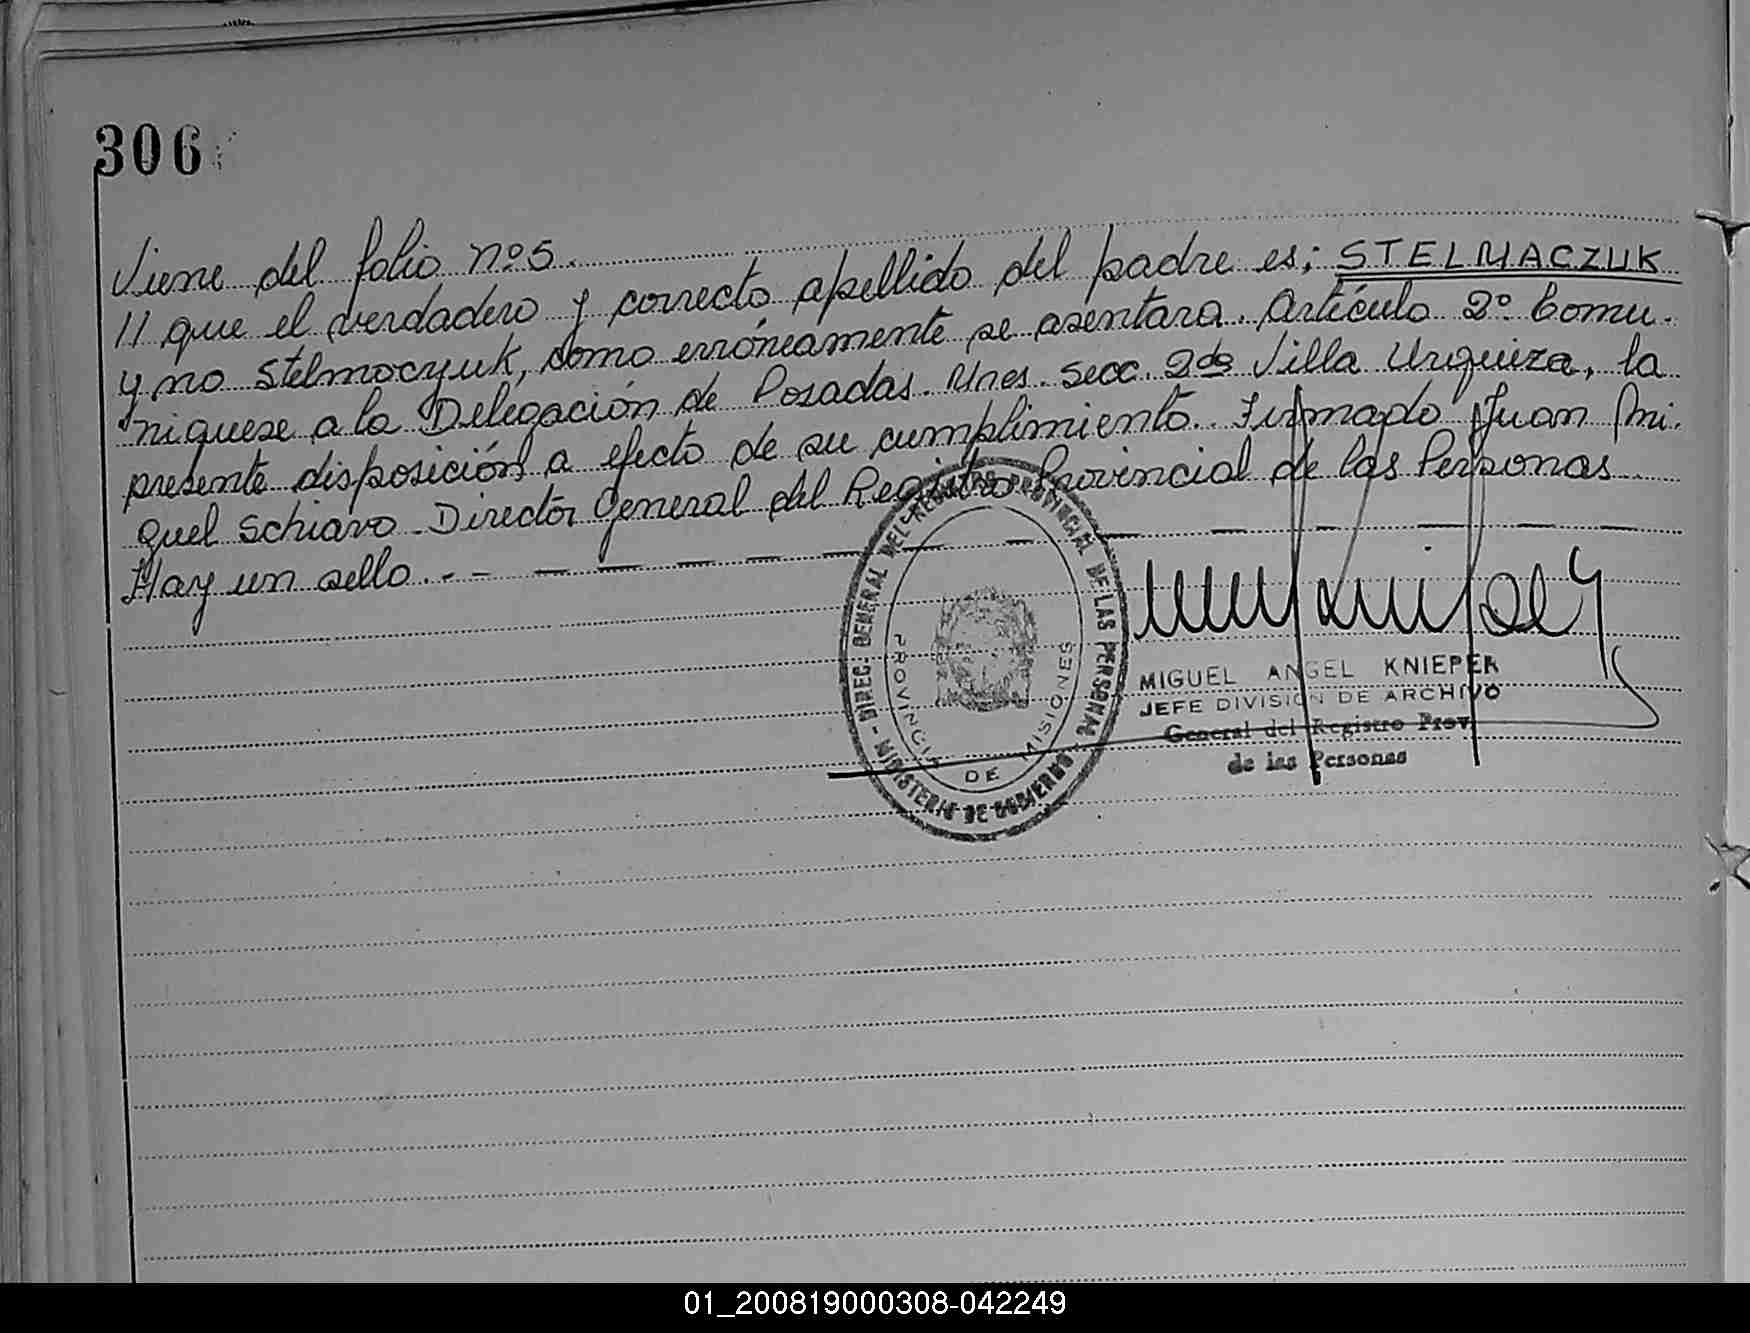 306
Viene del folio nº 5.
// que el verdadero y correcto apellido del padre es; STELMACZUK
y no Stelmocyuk, como erróneamente se asentara. Artículo 2º Comu-
niquese a la Delegación de Posadas. Mnes. Secc. 2da Villa Urquiza, la
presente disposición a efecto de su cumplimiento. Firmado Juan Mi-
guel Schiavo. Director General del Registro Provincial de las Personas
Hay un sello.
DIREC. GENERAL DEL REGISTRO PROVINCIAL DE LAS PERSONAS - MINISTERIO DE GOBIERNO
PROVINCIA DE MISIONES
MIGUEL ANGEL KNIEPER
JEFE DIVISION DE ARCHIVO
General del Registro Prov.
de las Personas
01_200819000308-042249